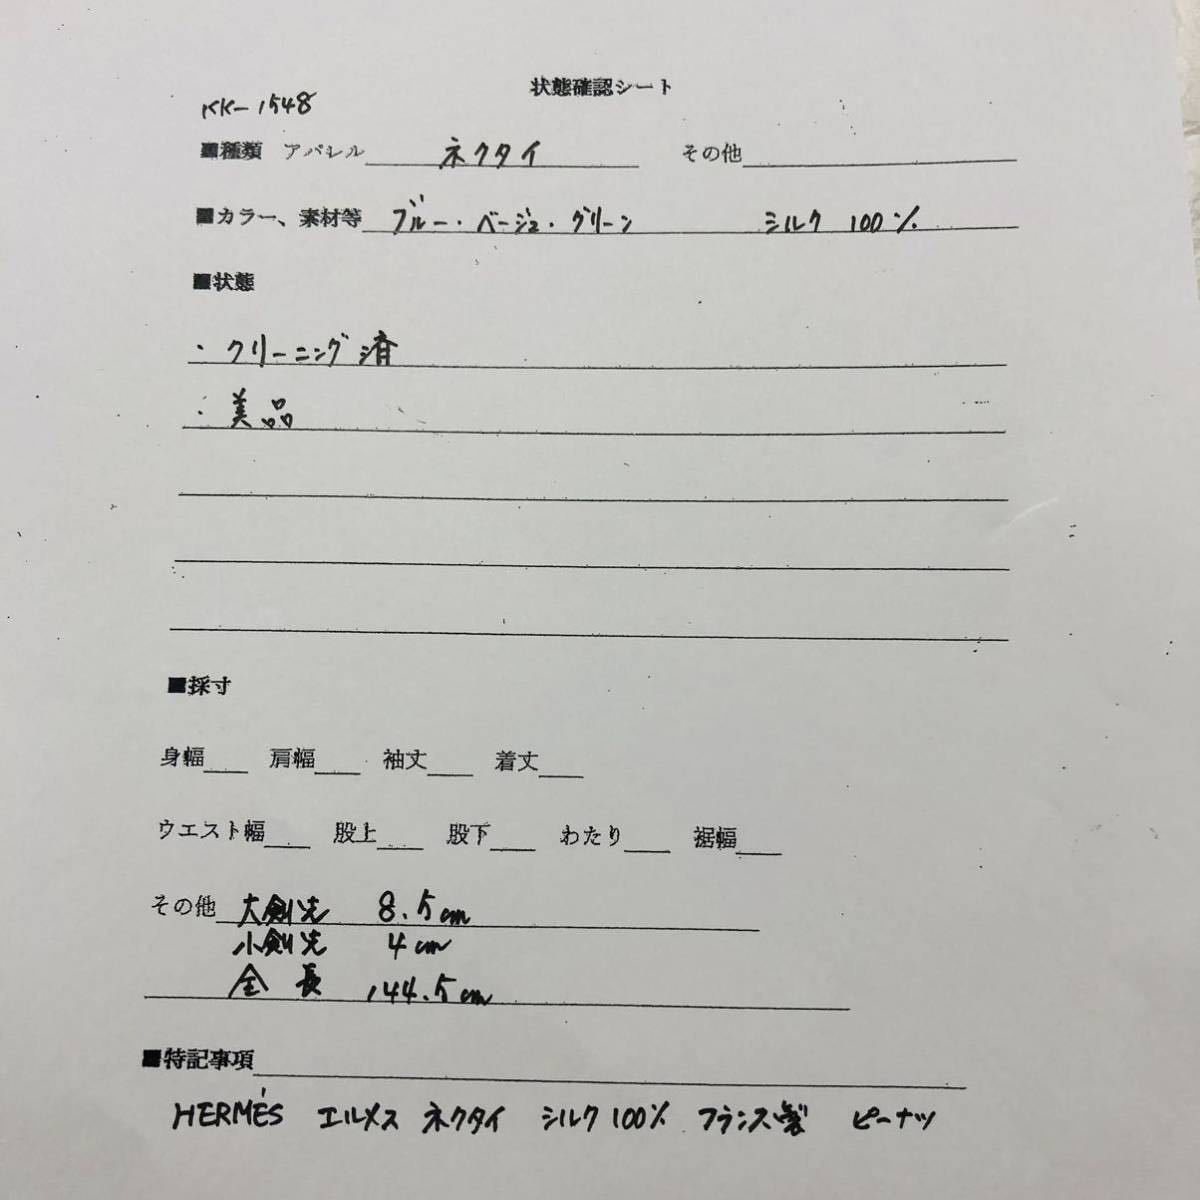 状態確認シート
KK-1548
■種類 アパレル ネクタイ その他
■カラー、素材等 ブルー・ベージュ・グリーン シルク 100%
■状態
・クリーニング済
・美品
■採寸
身幅 肩幅 袖丈 着丈
ウエスト幅 股上 股下 わたり 裾幅
その他 大剣先 8.5cm
小剣先 4cm
全長 144.5cm
■特記事項
HERMÈS エルメス ネクタイ シルク100% フランス製 ピーナツ